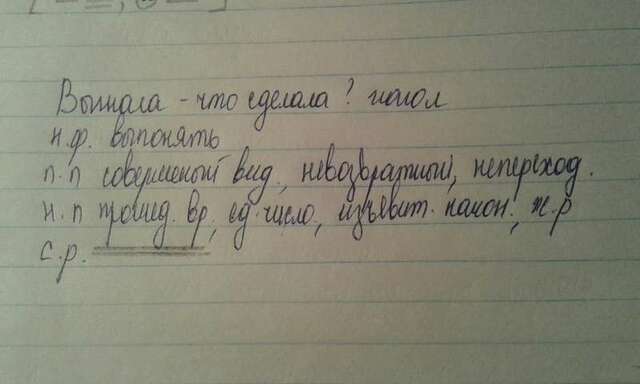 Выгнала - что сделала? глагол
н.ф. выпонять
п.п совершеный вид, невозвратный, непереход.
н.п прошед. вр, ед. число, изъявит. наклон., ж.р
с.р.